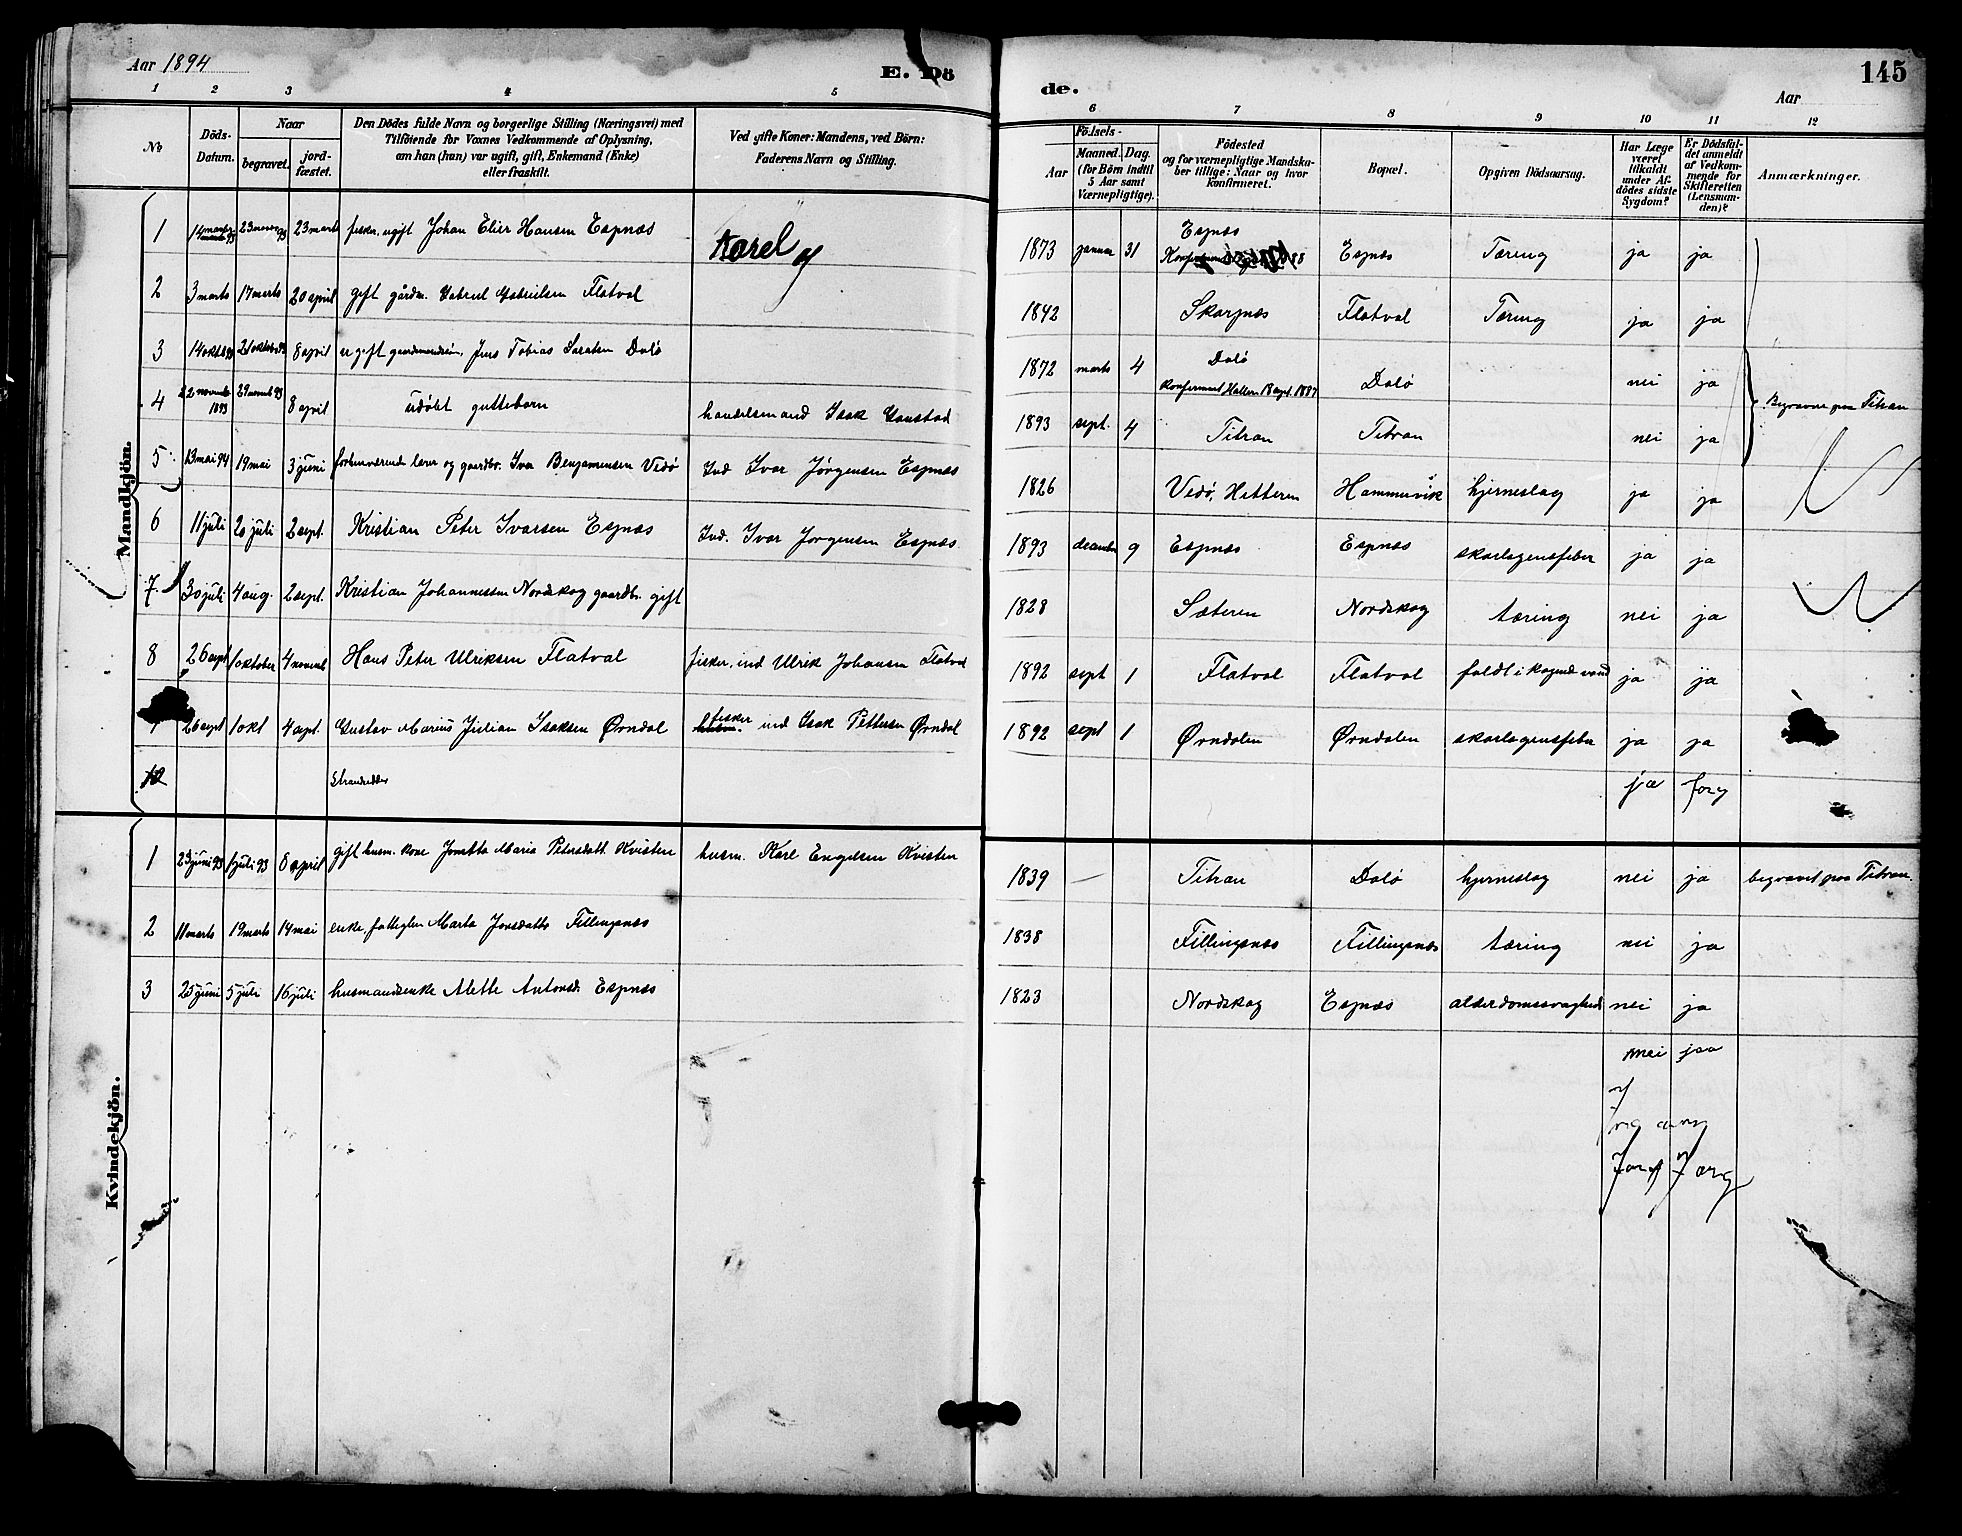 Aar 1894
E. Dö
de.
145
Aar
1 2 3 4 5 6 7 8 9 10 11 12
No
Döds-Datum.
Naar
begravet.
jord-fæstet.
Den Dödes fulde Navn og borgerlige Stilling (Næringsvei) med
Tilföiende for Voxnes Vedkommende af Oplysning,
om han (hun) var ugift, gift, Enkemand (Enke)
eller fraskilt.
Ved gifte Koner: Mandens, ved Börn:
Faderens Navn og Stilling.
Födsels-
Aar
Maaned. Dag.
(for Börn indtil
5 Aar samt
Værnepligtige).
Födested
og for værnepligtige Mandska-
ber tillige: Naar og hvor
konfirmeret.
Bopæl.
Opgiven Dödsaarsag.
Har Læge
været
tilkaldt
under Af-
dödes sidste
Sygdom?
Er Dödsfal-
det anmeldt
af Vedkom-
mende for
Skifteretten
(Lensman-
den)?
Anmærkninger.
Mandkjön.
1 14 marts 93 23 marts 93 23 marts fisker, ugift Johan Elier Hansen Espnæs Karel og 1873 januar 31 Espnæs Espnæs Tæring ja ja
2 3 marts 17 marts 20 april gift gårdm. Gabriel Gabrielsen Flatval 1842 Skarpnes Flatval Tæring ja ja
3 14 okt 93 21 oktob 93 8 april ugift gaardmandssön, Jens Tobias Dalö 1872 marts 4 Dalö
konfirmeret Hallern 18 sept. 1887 Dalö nei ja
4 22 novemb 1893 29 novemb 93 8 april udöbt guttebarn handelsmand Isak Gaustad 1893 sept. 4 Titran Titran nei ja Begravne paa Titran
5 13 mai 94 19 mai 3 juni forhenværende lærer og gaardbr. Ivar Benjaminsen Vedö Ind Ivar Jørgensen Espnæs 1826 Vedö, Hitteren Hammervik hjerneslag ja ja
6 11 juli 20 juli 2 sept. Kristian Peter Ivarsen Espnæs Ind. Ivar Jørgensen Espnæs 1893 december 9 Espnæs Espnæs skarlagensfeber ja ja
7 30 juli 4 aug. 2 sept. Kristian Johannessen Nordskag gaardbr. gift 1828 Sæteren Nordskag tæring nei ja
8 26 sept 1 oktober 4 novemb Hans Peter Ulriksen Flatval fisker, ind Ulrik Johansen Flatval 1892 sept 1 Flatval Flatval faldt i kogende vand ja ja
26 sept 1 okt 4 sept. Gustav Marius Julian Isaksen Ørndal fisker ind Isak Pettersen Ørndal 1892 sept 1 Ørndalen Ørndalen skarlagensfeber ja ja
10 ja
Kvindekjön.
1 23 juni 93 1 juli 93 8 april gift husm. kone Jonetta Maria Petersdatt. Kvisten husm. Karl Engelsen Kvisten 1839 — Titran Dalö hjerneslag nei ja begravet paa Titran.
2 11 marts 19 marts 14 mai enke, fattiglem Marta Jonsdatter Fillingsnæs 1838 Fillingsnæs Fillingsnæs tæring nei ja
3 25 juni 5 juli 16 juli husmandsenke Alette Antonsd. Espnæs 1823 Nordskag Espnæs alderdomssvaghed nei ja
nei jaa